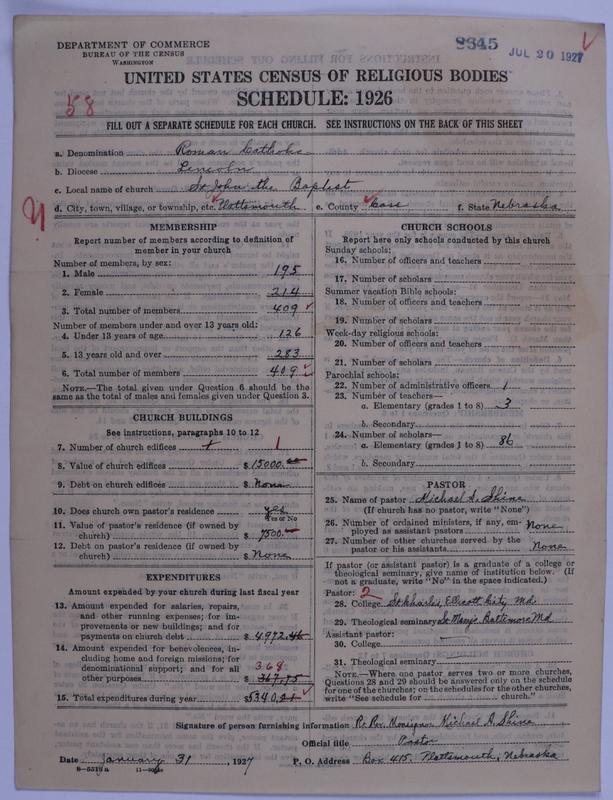 DEPARTMENT OF COMMERCE
BUREAU OF THE CENSUS
WASHINGTON
8845 JUL 20 1927
UNITED STATES CENSUS OF RELIGIOUS BODIES
SCHEDULE: 1926
58
FILL OUT A SEPARATE SCHEDULE FOR EACH CHURCH. SEE INSTRUCTIONS ON THE BACK OF THIS SHEET
a. Denomination Roman Catholic
b. Diocese Lincoln
c. Local name of church St John the Baptist
d. City, town, village, or township, etc. Plattsmouth e. County Cass f. State Nebraska
MEMBERSHIP
Report number of members according to definition of
member in your church
Number of members, by sex:
1. Male 195
2. Female 214
3. Total number of members 409
Number of members under and over 13 years old:
4. Under 13 years of age 126
5. 13 years old and over 283
6. Total number of members 409
NOTE.—The total given under Question 6 should be the
same as the total of males and females given under Question 3.
CHURCH BUILDINGS
See instructions, paragraphs 10 to 12
7. Number of church edifices 1 1
8. Value of church edifices $ 15000.00
9. Debt on church edifices $ None
10. Does church own pastor's residence? yes
Yes or No
11. Value of pastor's residence (if owned by
church) $ 7500.00
12. Debt on pastor's residence (if owned by
church) $ None
EXPENDITURES
Amount expended by your church during last fiscal year
13. Amount expended for salaries, repairs,
and other running expenses; for im-
provements or new buildings; and for
payments on church debt $ 4,972.46
14. Amount expended for benevolences, in-
cluding home and foreign missions; for
denominational support; and for all
368
other purposes $ 367.75
15. Total expenditures during year $ 5340.21
CHURCH SCHOOLS
Report here only schools conducted by this church
Sunday schools:
16. Number of officers and teachers
17. Number of scholars
Summer vacation Bible schools:
18. Number of officers and teachers
19. Number of scholars
Week-day religious schools:
20. Number of officers and teachers
21. Number of scholars
Parochial schools:
22. Number of administrative officers 1
23. Number of teachers—
a. Elementary (grades 1 to 8) 3
b. Secondary
24. Number of scholars—
a. Elementary (grades 1 to 8) 86
b. Secondary
PASTOR
25. Name of pastor Michael A. Shine
(If church has no pastor, write "None")
26. Number of ordained ministers, if any, em-
ployed as assistant pastors None
27. Number of other churches served by the
pastor or his assistants None
If pastor (or assistant pastor) is a graduate of a college or
theological seminary, give name of institution below. (If
not a graduate, write "No" in the space indicated.)
Pastor: 2
28. College St Charles, Ellicott City Md.
29. Theological seminary St Mary's Baltimore Md
Assistant pastor:
30. College
31. Theological seminary
NOTE.—Where one pastor serves two or more churches,
Questions 28 and 29 should be answered only on the schedule
for one of the churches; on the schedules for the other churches,
write "See schedule for church."
Signature of person furnishing information Rt. Rev. Monsignor Michael A. Shine
Official title Pastor
Date January 31, 1927 P. O. Address Box 415, Plattsmouth, Nebraska